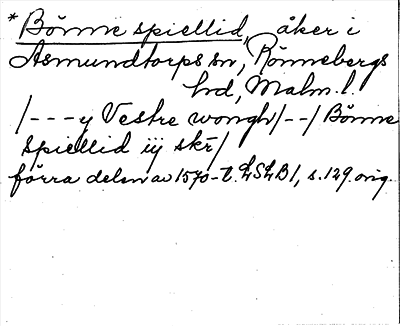 * Bönne spiellid, åker i
Asmundtorps sn, Rönnebergs
hd, Malm. l.
/---y Vestre wongh/--/Bönne
spiellid iij skr̄/
förra delen av 1570-t. LSLB 1, s. 129. orig.